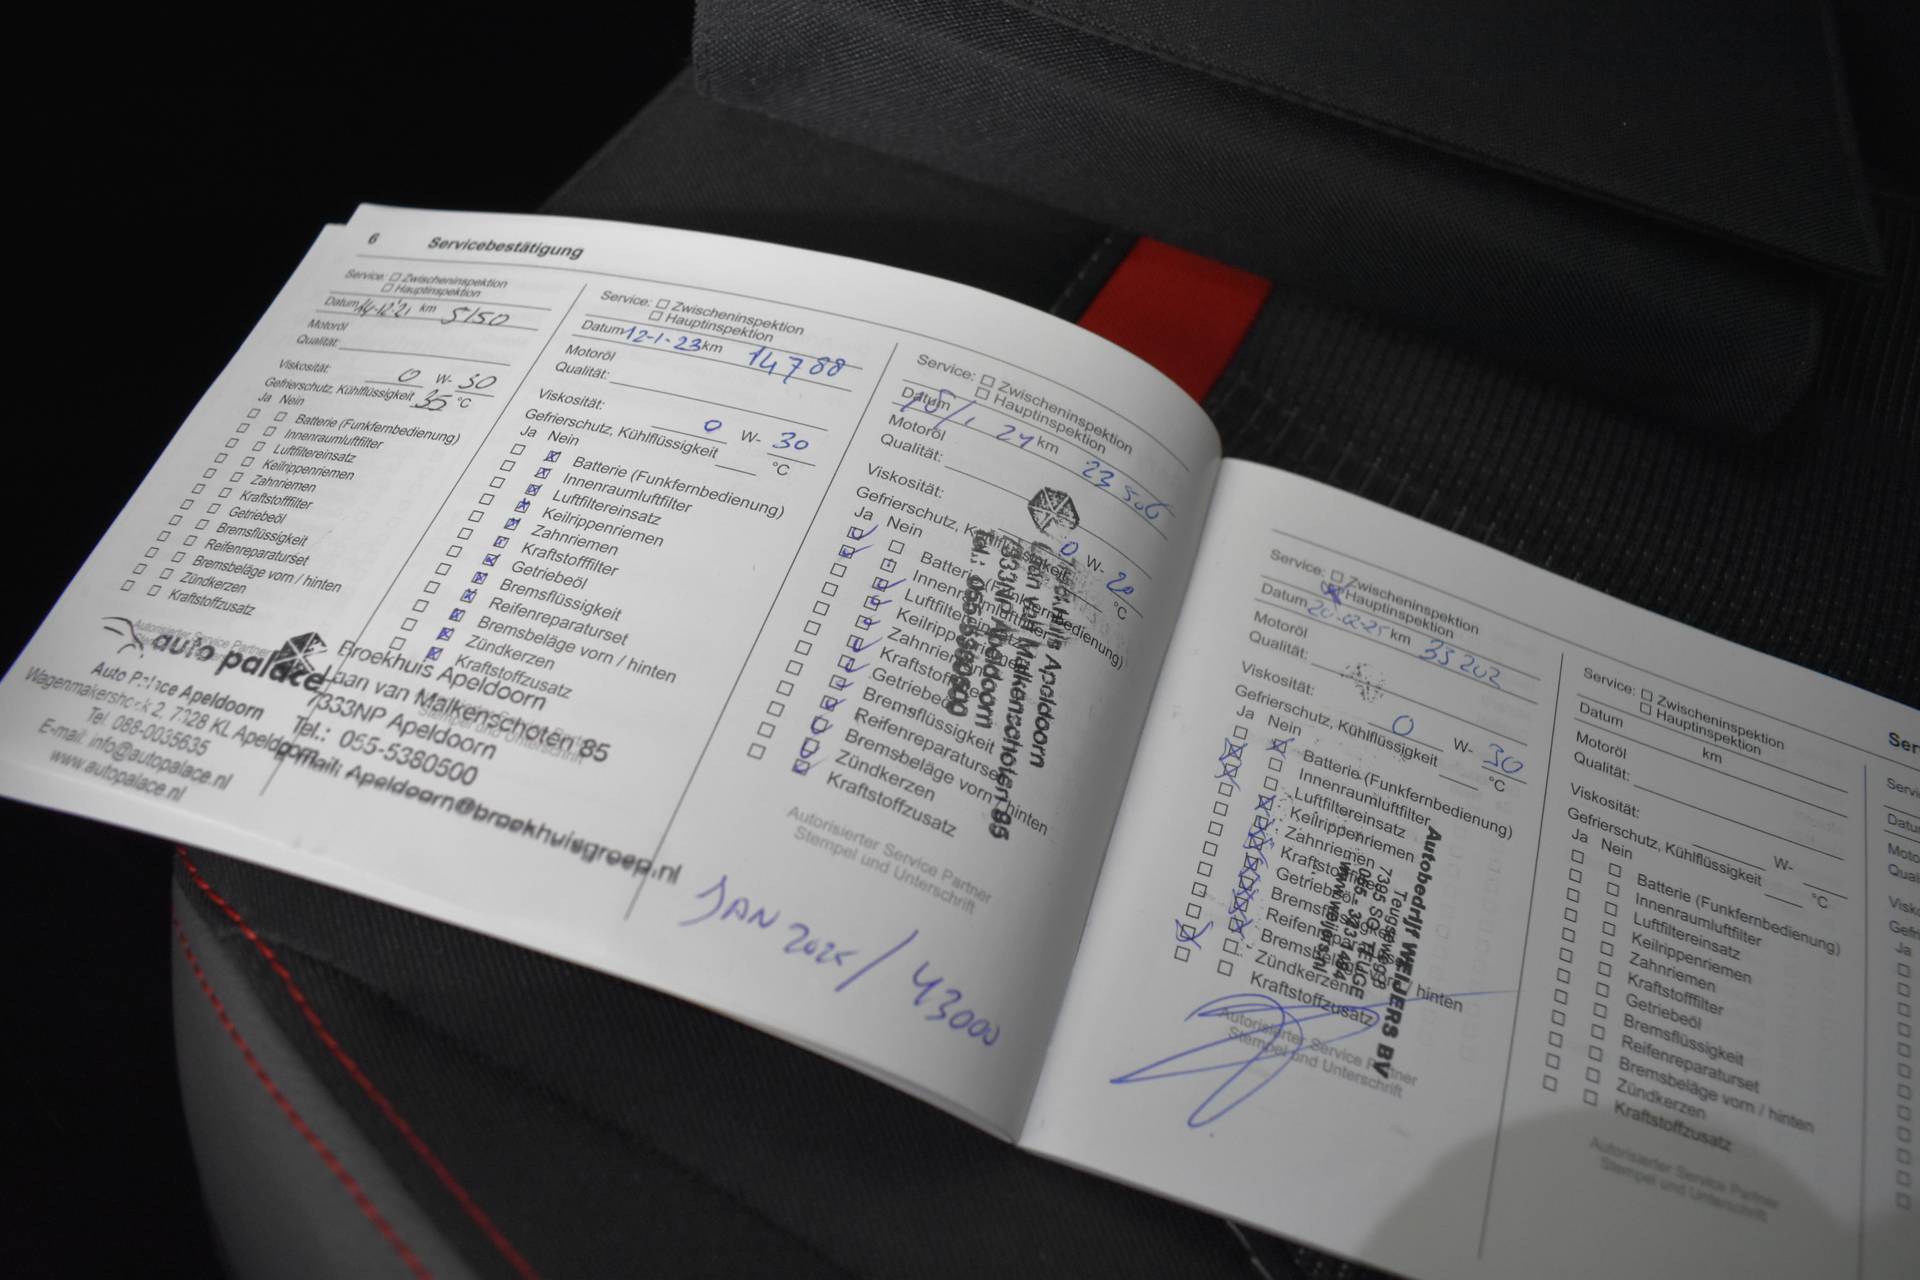 6 Servicebestätigung
Service: Zwischeninspektion
Hauptinspektion
Datum 14-12-21 km 5150
Motoröl
Qualität:
Viskosität: 0 W- 30
Gefrierschutz, Kühlflüssigkeit 35 °C
Ja Nein
Batterie (Funkfernbedienung)
Innenraumluftfilter
Luftfiltereinsatz
Keilrippenriemen
Zahnriemen
Kraftstofffilter
Getriebeöl
Bremsflüssigkeit
Reifenreparaturset
Bremsbeläge vorn / hinten
Zündkerzen
Kraftstoffzusatz
Autorisierter Service Partner
auto palace
Auto Palace Apeldoorn
Wagenmakershoek 2, 7328 KL Apeldoorn
Tel. 088-0035635
E-mail: info@autopalace.nl
www.autopalace.nl
Service: Zwischeninspektion
Hauptinspektion
Datum 12-1-23 km 14788
Motoröl
Qualität:
Viskosität: 0 W- 30
Gefrierschutz, Kühlflüssigkeit °C
Ja Nein
Batterie (Funkfernbedienung)
Innenraumluftfilter
Luftfiltereinsatz
Keilrippenriemen
Zahnriemen
Kraftstofffilter
Getriebeöl
Bremsflüssigkeit
Reifenreparaturset
Bremsbeläge vorn / hinten
Zündkerzen
Kraftstoffzusatz
Broekhuis Apeldoorn
Laan van Malkenschoten 85
7333NP Apeldoorn
Tel.: 055-5380500
Email: Apeldoorn@broekhuisgroep.nl
Service: Zwischeninspektion
Hauptinspektion
Datum 15/1 24 km 23506
Motoröl
Qualität:
Viskosität: 0 W- 20
Gefrierschutz, Kühlflüssigkeit °C
Ja Nein
Batterie (Funkfernbedienung)
Innenraumluftfilter
Luftfiltereinsatz
Keilrippenriemen
Zahnriemen
Kraftstofffilter
Getriebeöl
Bremsflüssigkeit
Reifenreparaturset
Bremsbeläge vorn / hinten
Zündkerzen
Kraftstoffzusatz
Broekhuis Apeldoorn
Laan van Malkenschoten 85
7333NP Apeldoorn
Tel.: 055-5380500
Autorisierter Service Partner
Stempel und Unterschrift
JAN 2025 / 43000
Service: Zwischeninspektion
Hauptinspektion
Datum 20-02-25 km 33203
Motoröl
Qualität:
Viskosität: 0 W- 30
Gefrierschutz, Kühlflüssigkeit °C
Ja Nein
Batterie (Funkfernbedienung)
Innenraumluftfilter
Luftfiltereinsatz
Keilrippenriemen
Zahnriemen
Kraftstofffilter
Getriebeöl
Bremsflüssigkeit
Reifenreparaturset
Bremsbeläge vorn / hinten
Zündkerzen
Kraftstoffzusatz
Autobedrijf WEIJERS BV
7395 SC TEUGE
Autorisierter Service Partner
Stempel und Unterschrift
Service: Zwischeninspektion
Hauptinspektion
Datum km
Motoröl
Qualität:
Viskosität: W-
Gefrierschutz, Kühlflüssigkeit °C
Ja Nein
Batterie (Funkfernbedienung)
Innenraumluftfilter
Luftfiltereinsatz
Keilrippenriemen
Zahnriemen
Kraftstofffilter
Getriebeöl
Bremsflüssigkeit
Reifenreparaturset
Bremsbeläge vorn / hinten
Zündkerzen
Kraftstoffzusatz
Autorisierter Service Partner
Stempel und Unterschrift
Ja